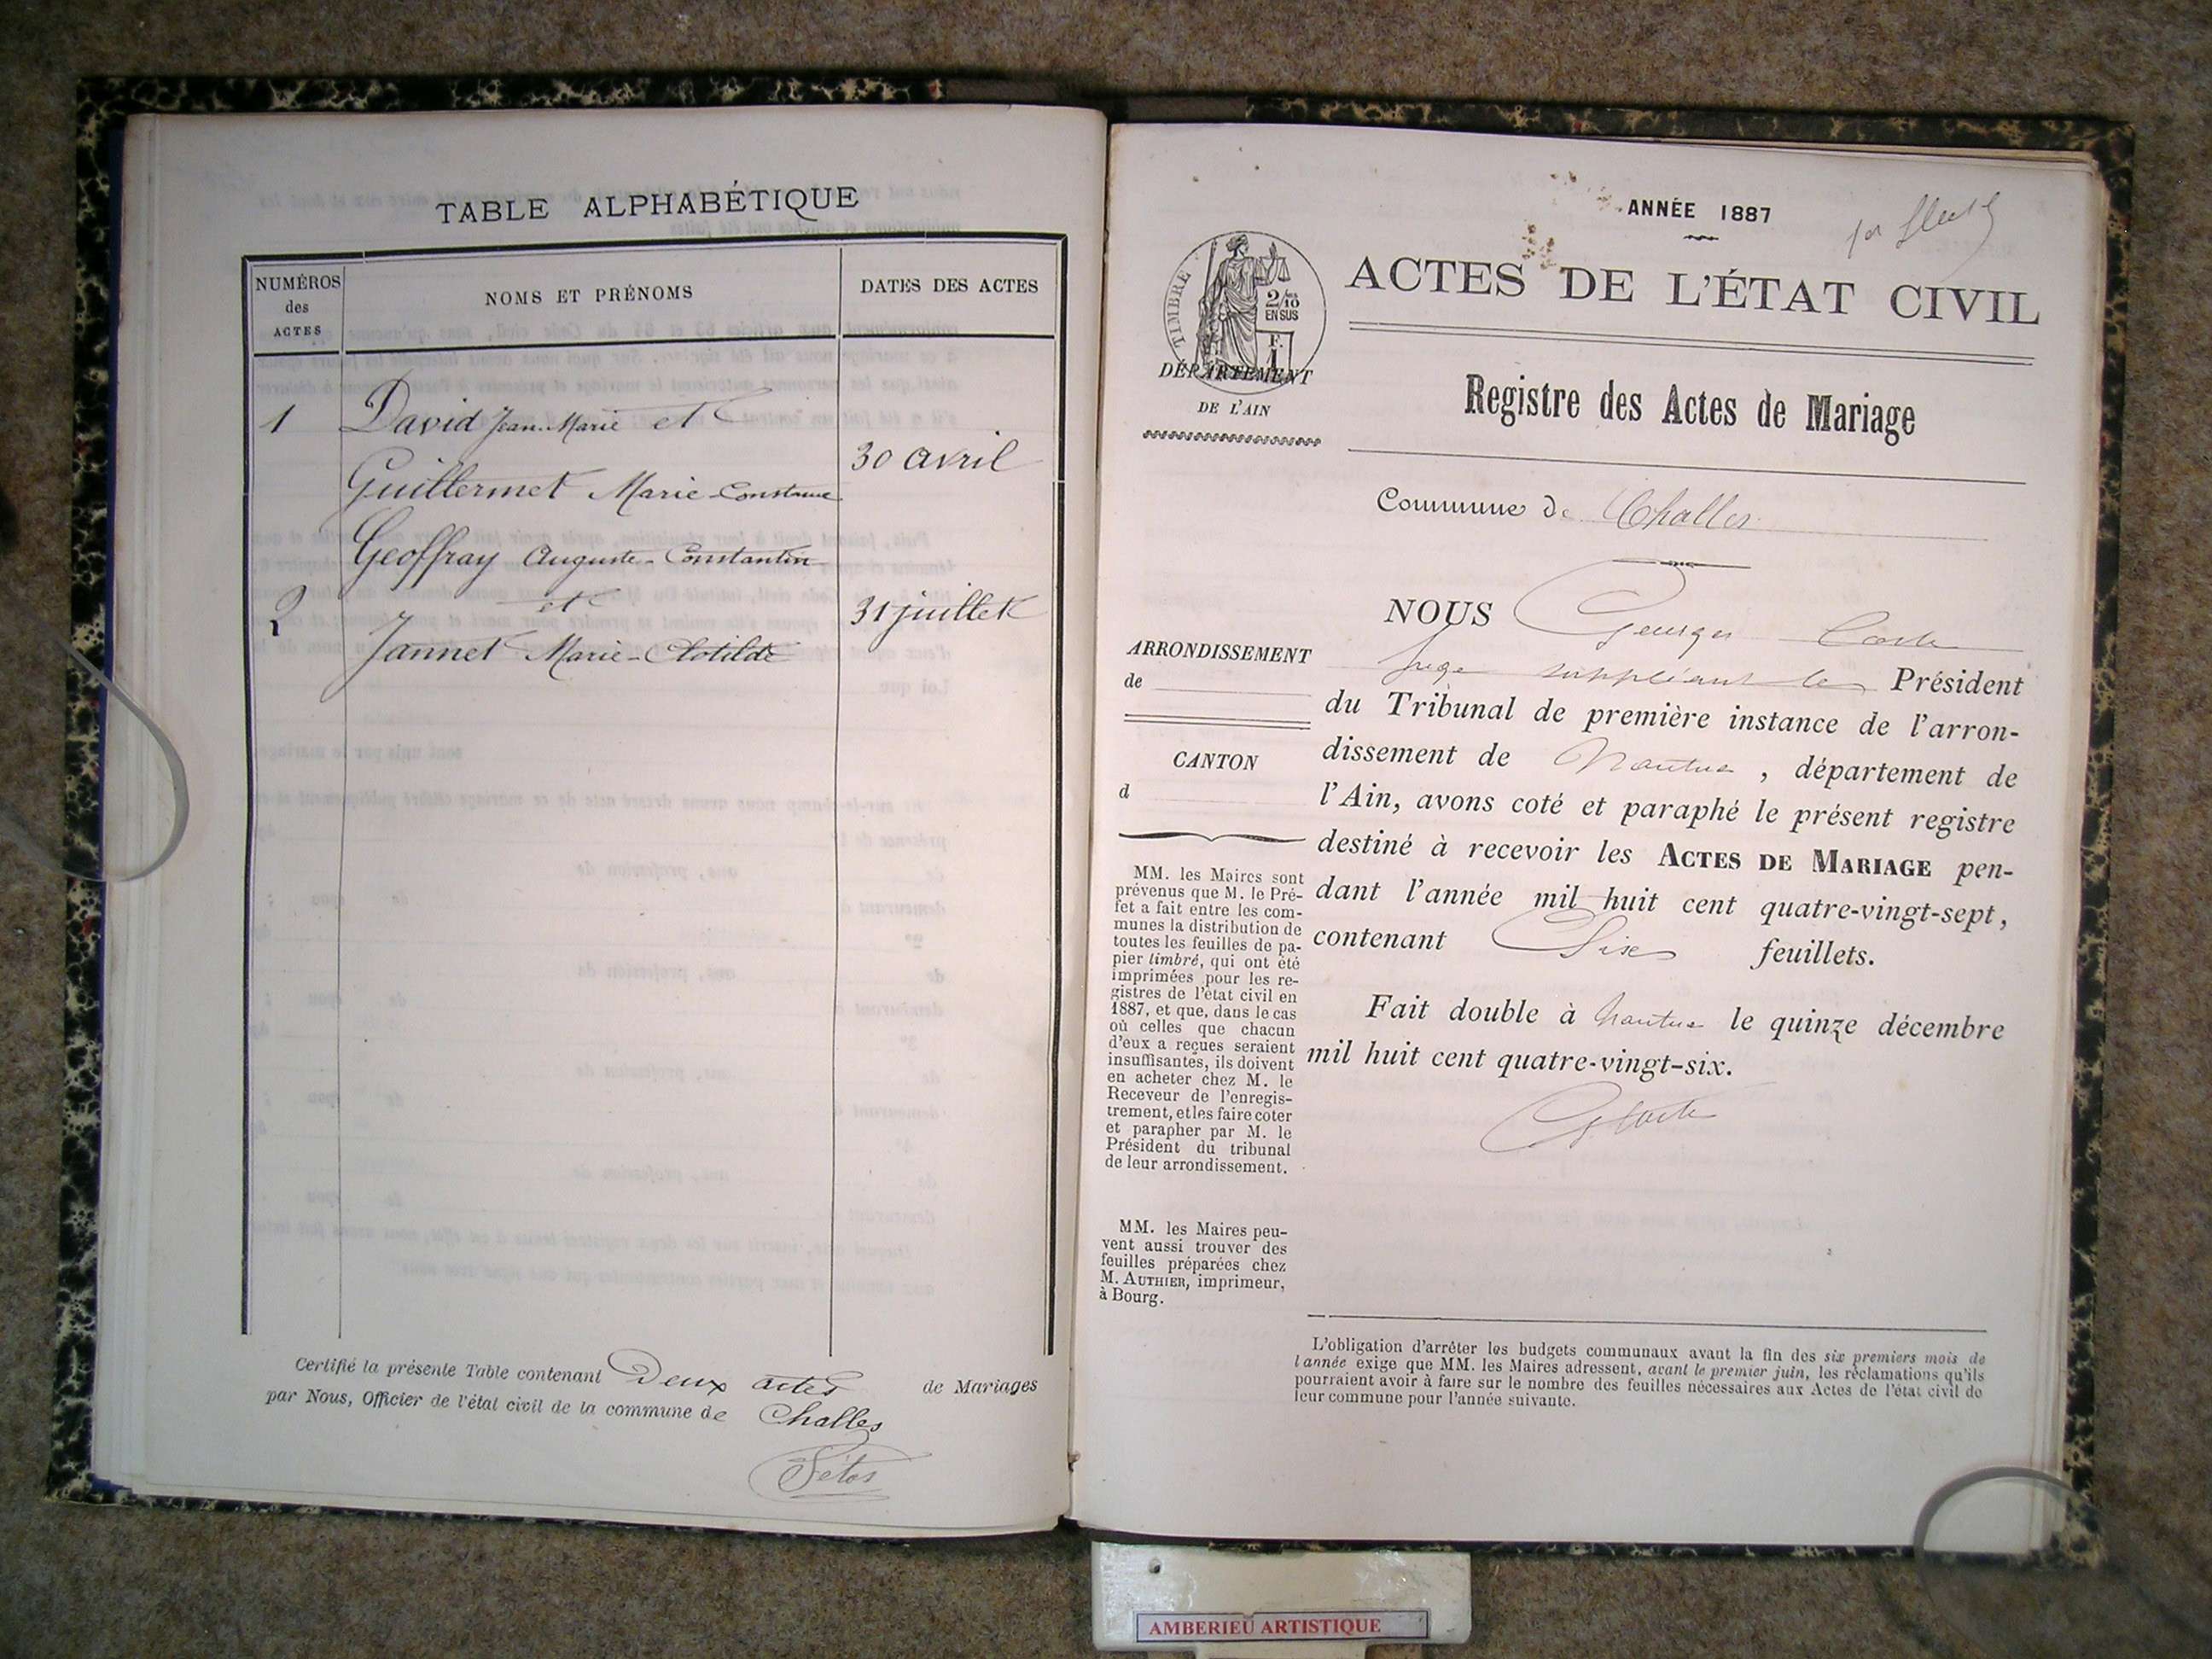 TABLE ALPHABÉTIQUE
NUMÉROS
des
ACTES
NOMS ET PRÉNOMS
DATES DES ACTES
1
David Jean-Marie et
Guillermet Marie-Constance
30 avril
2
Geoffray Auguste-Constantin
et
Jannet Marie-Clotilde
31 juillet
Certifié la présente Table contenant Deux actes de Mariages
par Nous, Officier de l'état civil de la commune de Challes
ANNÉE 1887
TIMBRE
2/10
EN SUS
F.
1
DÉPARTEMENT
DE L'AIN
ACTES DE L'ÉTAT CIVIL
Registre des Actes de Mariage
Commune de Challes
ARRONDISSEMENT
de
CANTON
d
MM. les Maires sont
prévenus que M. le Pré-
fet a fait entre les com-
munes la distribution de
toutes les feuilles de pa-
pier timbré, qui ont été
imprimées pour les re-
gistres de l'état civil en
1887, et que, dans le cas
où celles que chacun
d'eux a reçues seraient
insuffisantes, ils doivent
en acheter chez M. le
Receveur de l'enregis-
trement, et les faire coter
et parapher par M. le
Président du tribunal
de leur arrondissement.
MM. les Maires peu-
vent aussi trouver des
feuilles préparées chez
M. AUTHIER, imprimeur,
à Bourg.
NOUS Georges
Juge suppléant le Président
du Tribunal de première instance de l'arron-
dissement de Nantua, département de
l'Ain, avons coté et paraphé le présent registre
destiné à recevoir les ACTES DE MARIAGE pen-
dant l'année mil huit cent quatre-vingt-sept,
contenant Six feuillets.
Fait double à Nantua le quinze décembre
mil huit cent quatre-vingt-six.
L'obligation d'arrêter les budgets communaux avant la fin des six premiers mois de
l'année exige que MM. les Maires adressent, avant le premier juin, les réclamations qu'ils
pourraient avoir à faire sur le nombre des feuilles nécessaires aux Actes de l'état civil de
leur commune pour l'année suivante.
AMBERIEU ARTISTIQUE